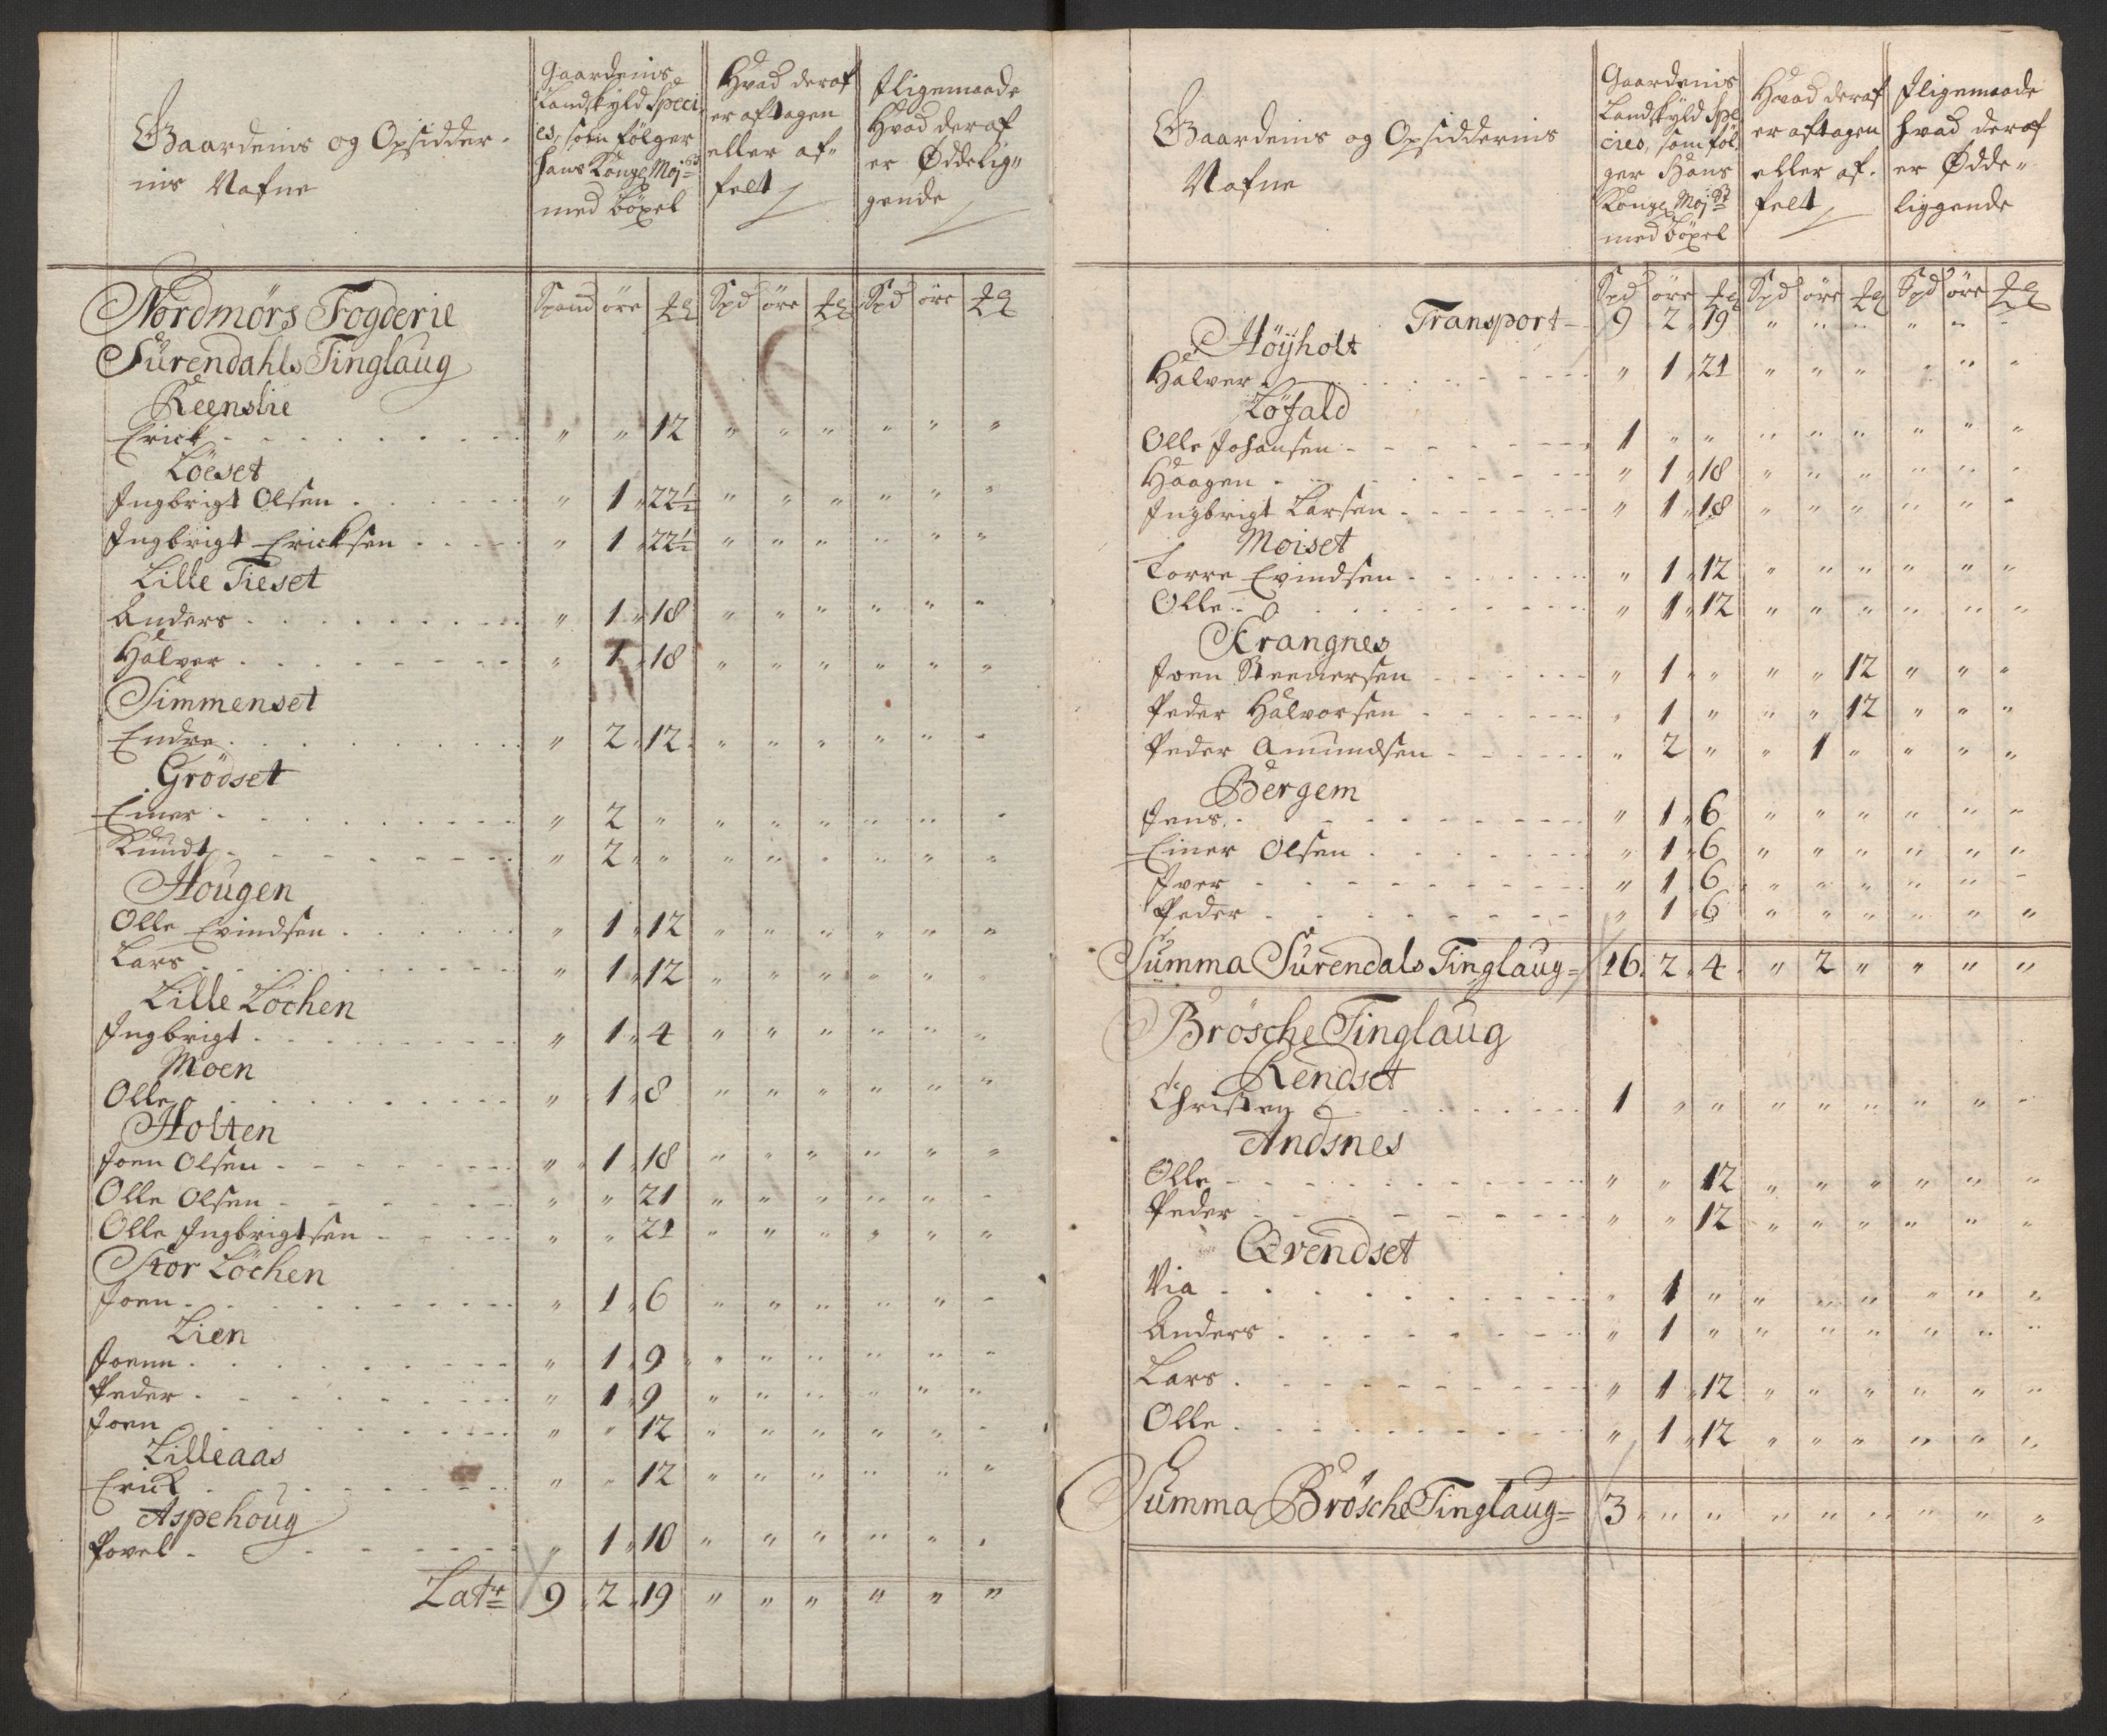 Gaardenis og Opsidder-
nis Nafne
Gaardenis
Landskyld Speci
ies, som følger
hans Kongl Maj:st
med böxel
Hvad deraf
er aftagen
eller af-
felt
Iligemaade
Hvad deraf
er Øddelig-
gende
Nordmørs Fogderie
Spand öre Spd öre Spd öre
Surendahls Tinglaug
Reenslie
Erick - " " 12 " " " " " "
Löeset
Ingbrigt Olsen - " 1 22½ " " " " " "
Ingbrigt Ericksen - " 1 22½ " " " " " "
Lille Tieset
Anders - " 1 18 " " " " " "
Halvor - " 1 18 " " " " " "
Simmenset
Endre - " 2 12 " " " " " "
Grödset
Einer - " 2 " " " " " " "
Knudt - " 2 " " " " " " "
Hougen
Olle Evindsen - " 1 12 " " " " " "
Lars - " 1 12 " " " " " "
Lille Löchen
Ingbrigt - " 1 4 " " " " " "
Moen
Olle - " 1 8 " " " " " "
Holten
Joen Olsen - " 1 18 " " " " " "
Olle Olsen - " " 21 " " " " " "
Olle Ingbrigtsen - " " 21 " " " " " "
Stor Löchen
Joen - " 1 6 " " " " " "
Lien
Joenn - " 1 9 " " " " " "
Peder - " 1 9 " " " " " "
Joen - " " 12 " " " " " "
Lilleaas
Erick - " " 12 " " " " " "
Aspehoug
Povel - " 1 10 " " " " " "
Latr 9 2 19 " " " " " "
Gaardenis og Opsiddernis
Nafne
Gaardenis
Landskyld Spe
cies, som föl
ger Hans
Kongl Maj:st
med böxel
Hvad deraf
er aftagen
eller af-
felt
Iligemaade
hvad deraf
er Ødde-
liggende
Spd öre Spd öre Spd öre
Transport - 9 2 19 " " " " " "
Höÿholt
Halvor - " 1 21 " " " " " "
Löfald
Olle Johansen - 1 " " " " " " " "
Haagen - " 1 18 " " " " " "
Ingbrigt Larsen - " 1 18 " " " " " "
Moiset
Torre Evindsen - " 1 12 " " " " " "
Olle - " 1 12 " " " " " "
Krangnes
Joen Steenersen - " 1 " " " 12 " " "
Peder Halvorsen - " 1 " " " 12 " " "
Peder Amundsen - " 2 " " 1 " " " "
Bergem
Jens - " 1 6 " " " " " "
Einer Olsen - " 1 6 " " " " " "
Iver - " 1 6 " " " " " "
Peder - " 1 6 " " " " " "
Summa Surendals Tinglaug = 16 2 4 " 2 " " " "
Brösche Tinglaug
Rendset
Christen - 1 " " " " " " " "
Andsnes
Olle - " " 12 " " " " " "
Peder - " " 12 " " " " " "
Qvendset
Via - " 1 " " " " " " "
Anders - " 1 " " " " " " "
Lars - " 1 12 " " " " " "
Olle - " 1 12 " " " " " "
Summa Brösche Tinglaug = 3 " " " " " " " "